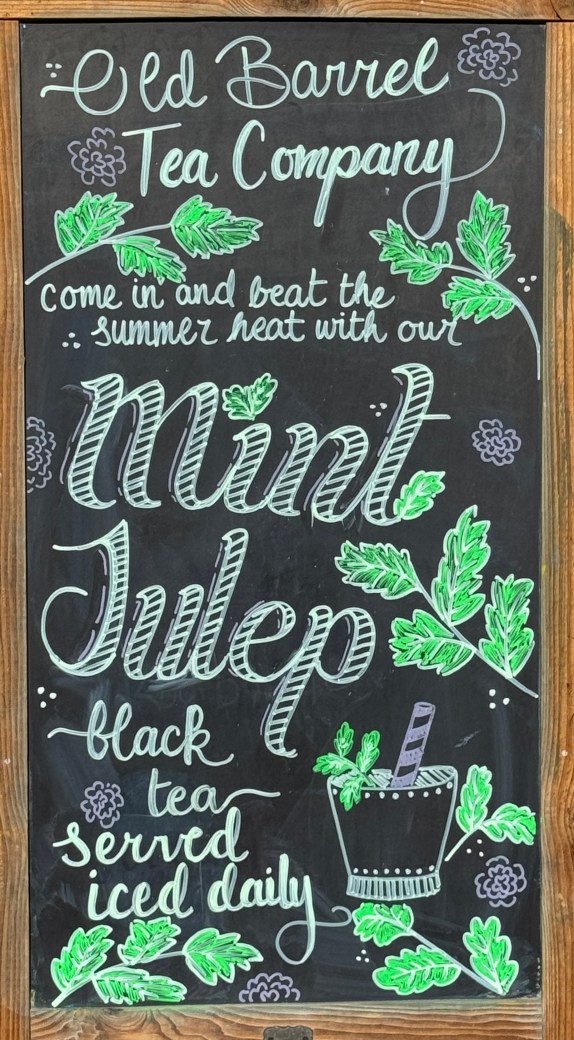 Old Barrel
Tea Company
come in and beat the
summer heat with our
Mint
Julep
black
tea
served
iced daily